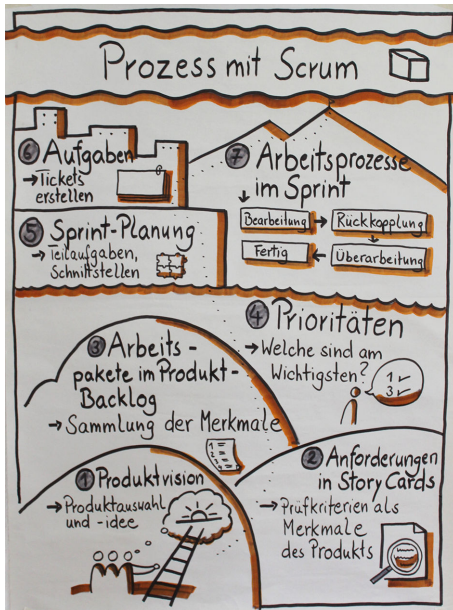 Prozess mit Scrum
6 Aufgaben
→Tickets
erstellen
7 Arbeitsprozesse
im Sprint
Bearbeitung → Rückkopplung
Fertig ← Überarbeitung
5 Sprint-Planung
→ Teilaufgaben,
Schnittstellen
4 Prioritäten
→Welche sind am
Wichtigsten?
1 ✓
3 ✓
3 Arbeits-
pakete im Produkt-
Backlog
→ Sammlung der Merkmale
1 Produktvision
→ Produktauswahl
und -idee
2 Anforderungen
in Story Cards
→ Prüfkriterien als
Merkmale
des Produkts